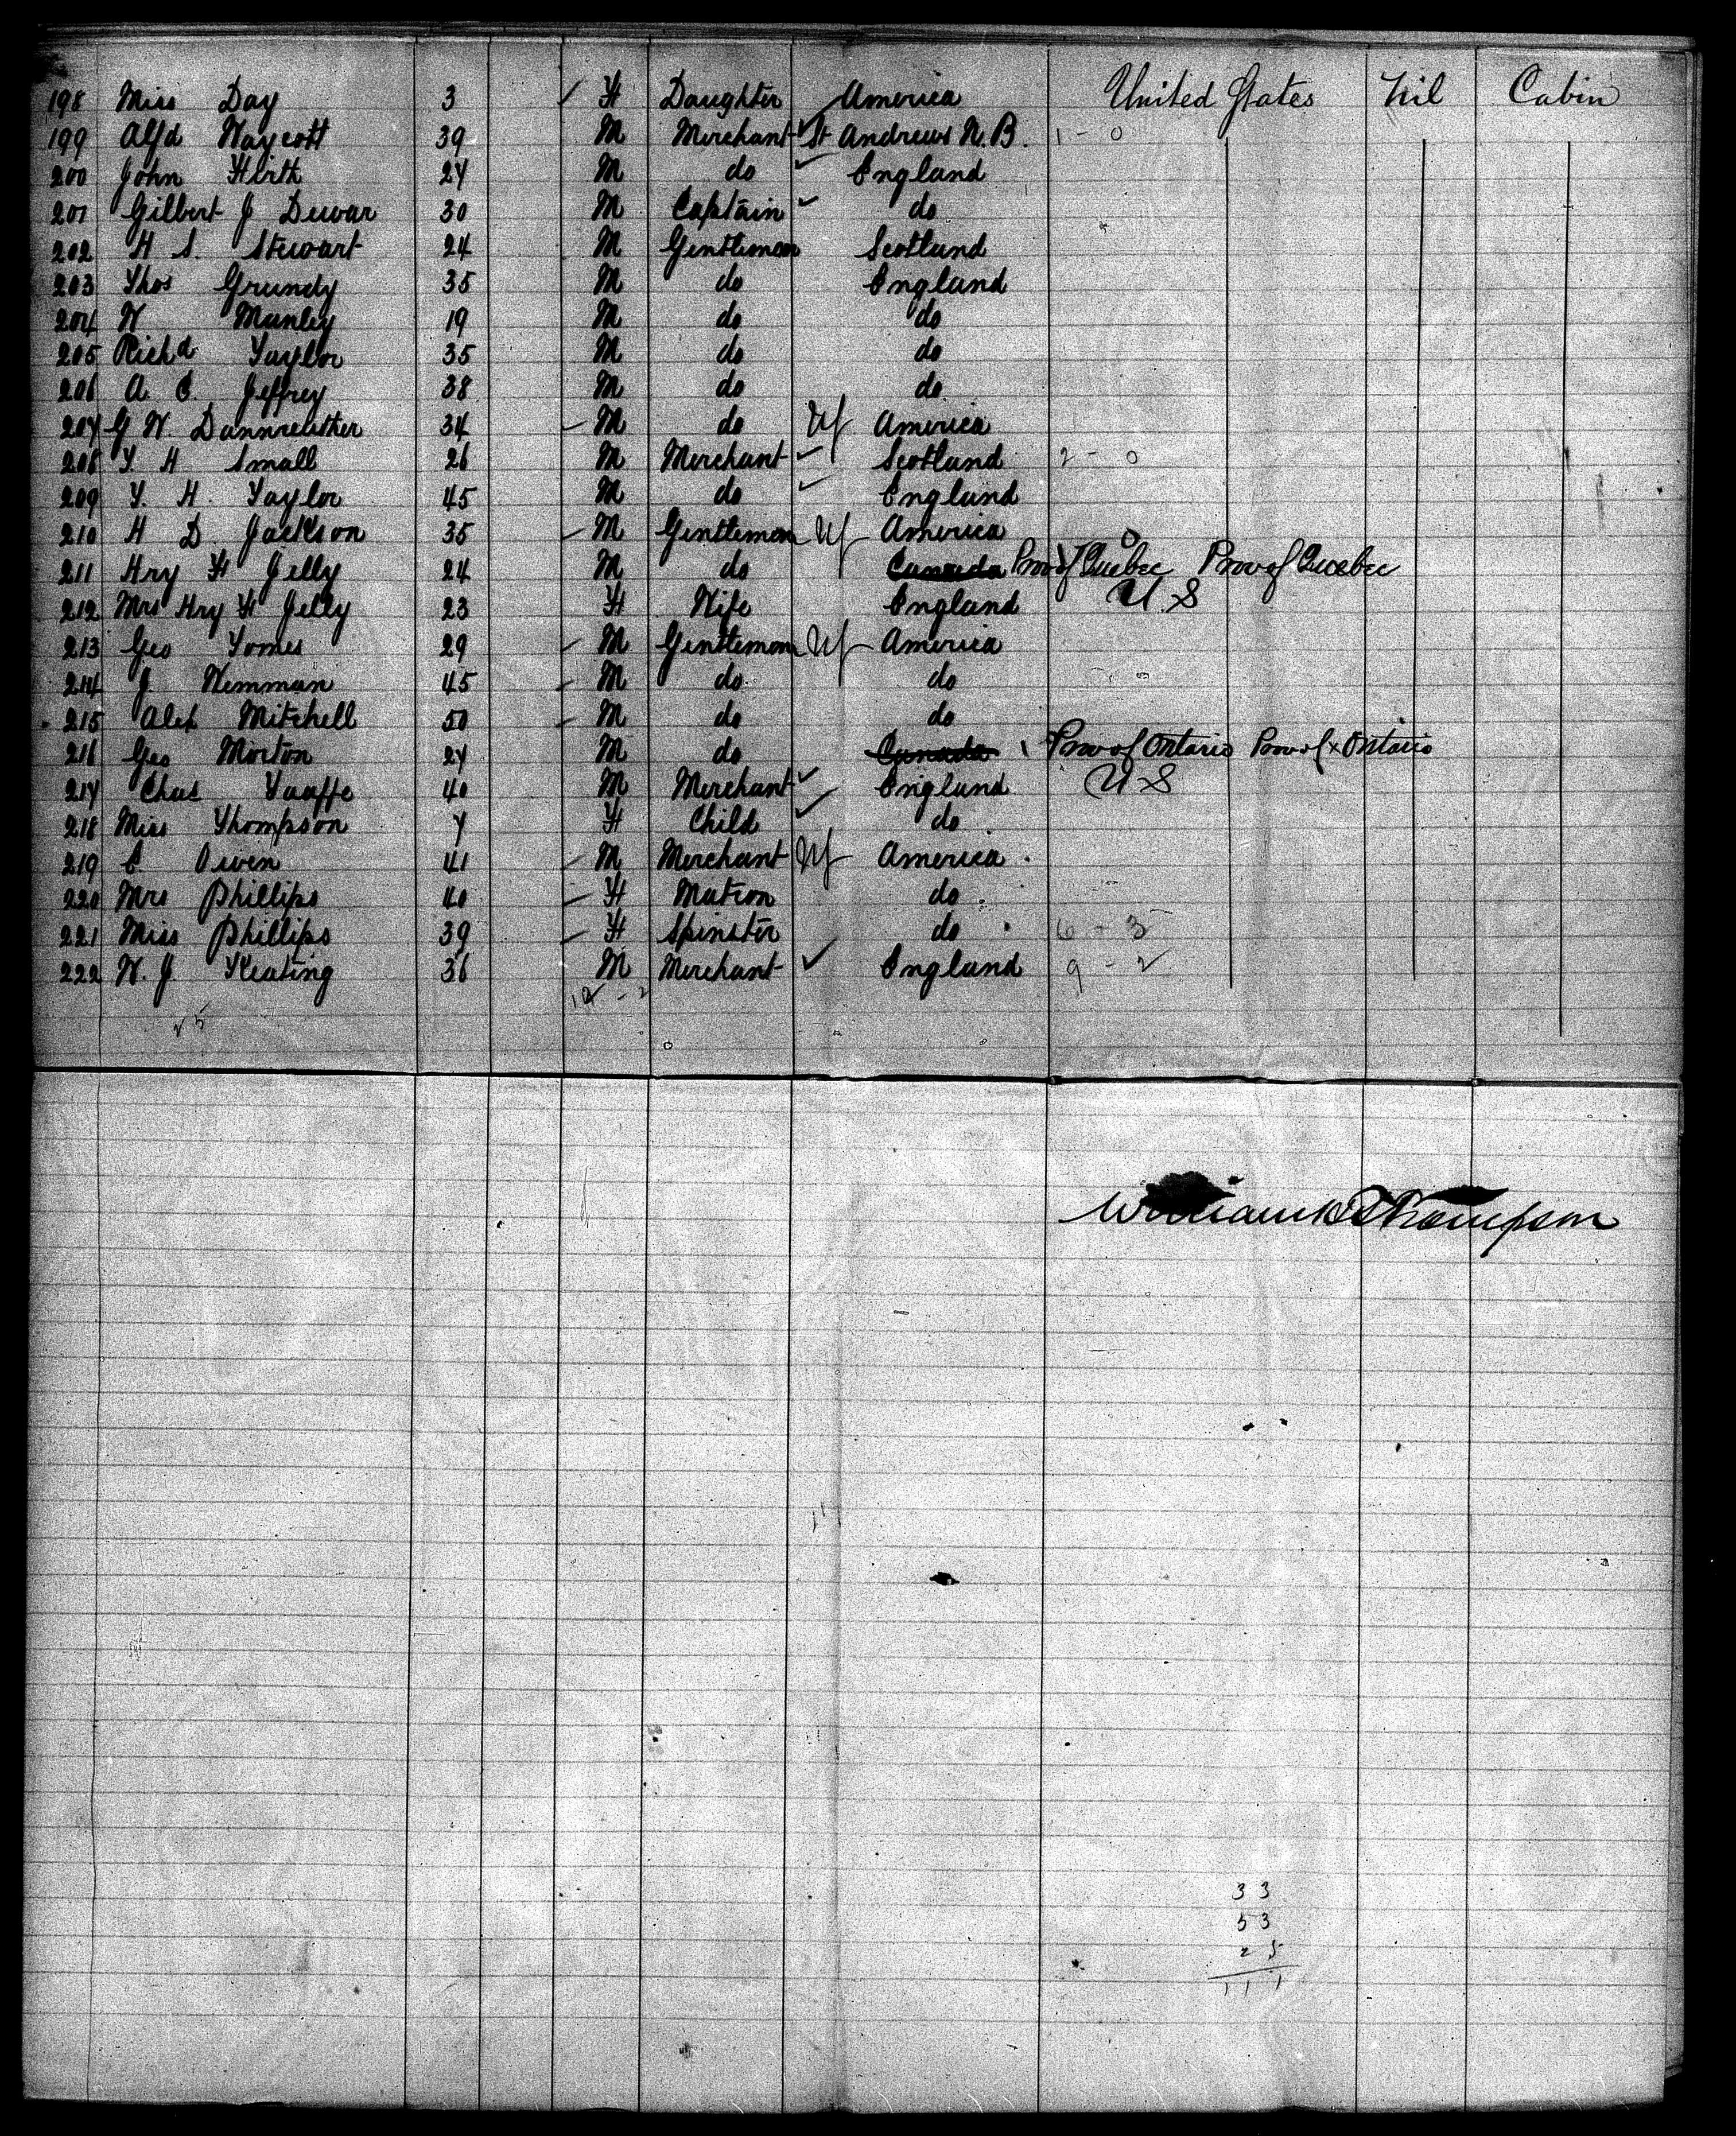 198 Miss Day 3 F Daughter America United States Nil Cabin
199 Alfd Waycott 39 M Merchant St Andrews N.B. 1 - 0
200 John Firth 24 M do England
201 Gilbert J Dewar 30 M Captain do
202 H S. Stewart 24 M Gentleman Scotland
203 Thos Grundy 35 M do England
204 W Manley 19 M do do
205 Richd Taylor 35 M do do
206 A E Jeffrey 38 M do do
207 G W. Dannreuther 34 M do America
208 T. H Small 26 M Merchant Scotland 2 - 0
209 T. H. Taylor 45 M do England
210 H D. Jackson 35 M Gentleman America
211 Hry F Jelly 24 M do Canada Prov of Quebec Prov of Quebec
212 Mrs Hry F Jelly 23 F Wife England U.S
213 Geo Tomes 29 M Gentleman America
214 J. Wemman 45 M do do
215 Alex Mitchell 50 M do do
216 Geo Morton 27 M do Canada Prov of Ontario Prov of Ontario
217 Chas Taaffe 40 M Merchant England U S
218 Miss Thompson 7 F Child do
219 E. Owen 41 M Merchant America
220 Mrs Phillips 40 F Matron do
221 Miss Phillips 39 F Spinster do 6 - 3
222 W. J. Keating 36 M Merchant England 9 - 2
12 - 2
25
William Thompson
33
53
25
111